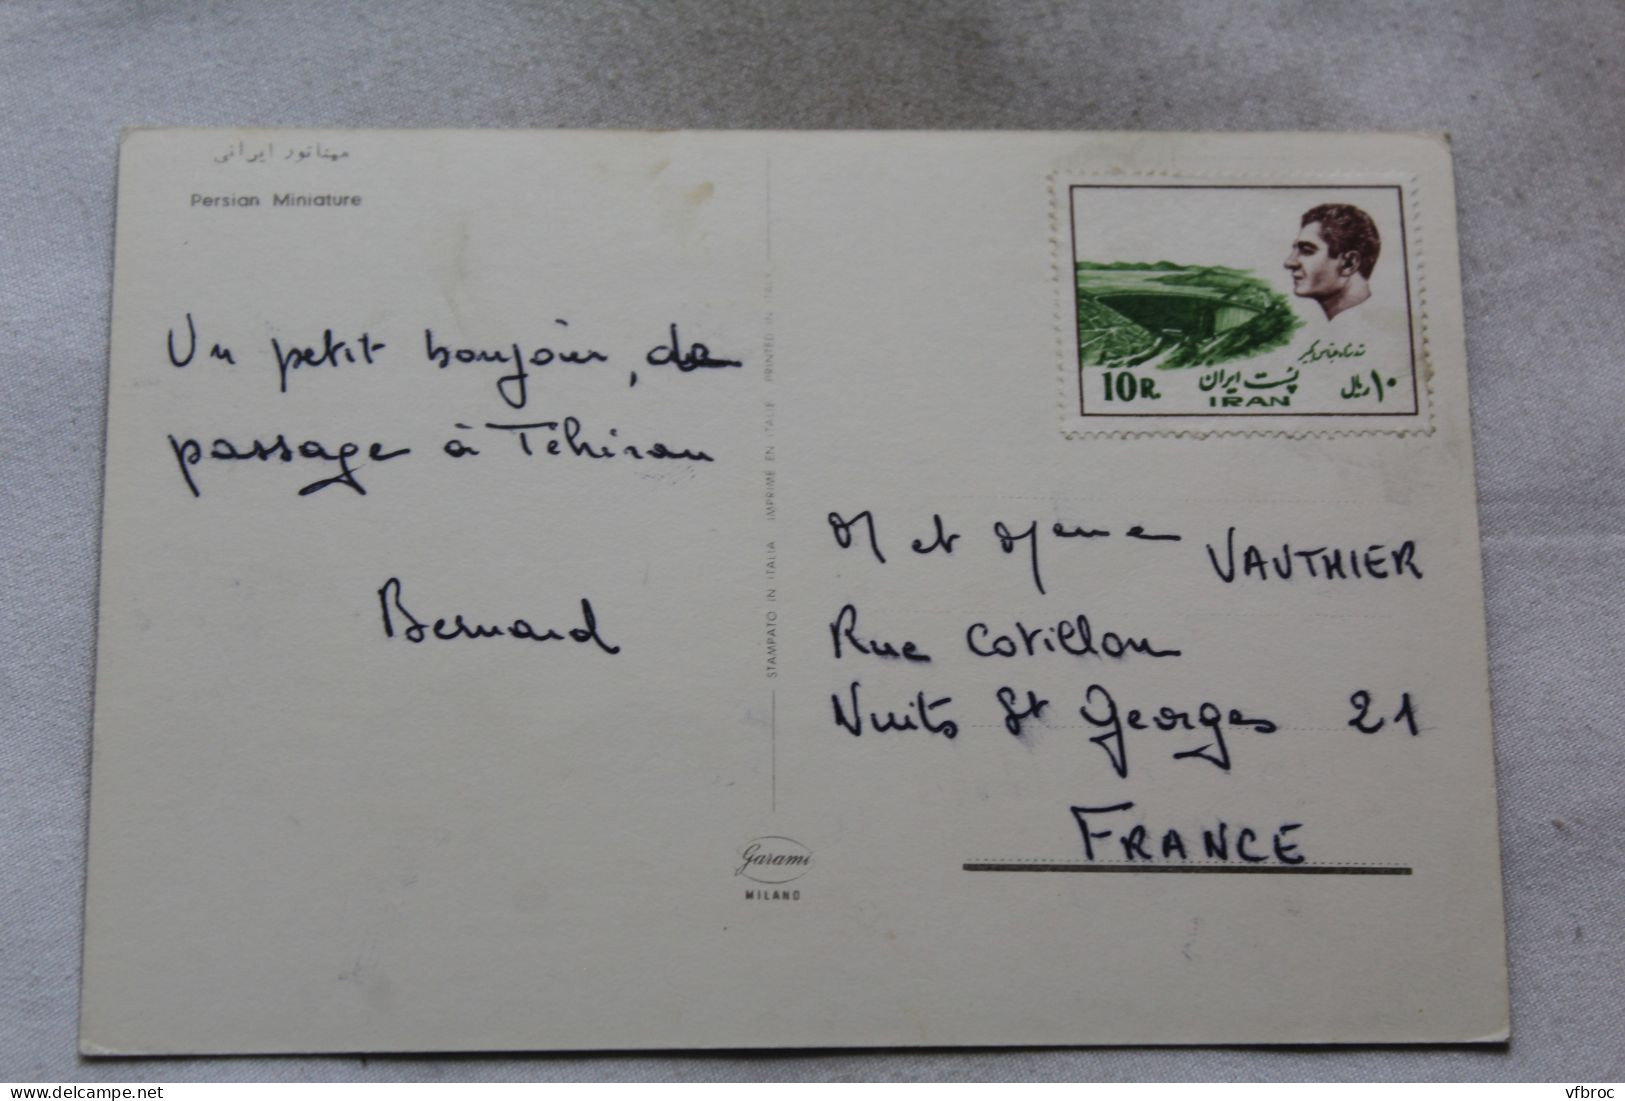 مینیاتور ایرانی
Persian Miniature
Un petit bonjour, de
passage à Téhiran
Bernard
STAMPATO IN ITALIA IMPRIMÉ EN ITALIE PRINTED IN ITALY
Garami
MILANO
10 R.
پست ایران
IRAN
۱۰ ریال
M et Mme VAUTHIER
Rue Cotillon
Nuits St Georges 21
FRANCE
delcampe.net
vfbroc